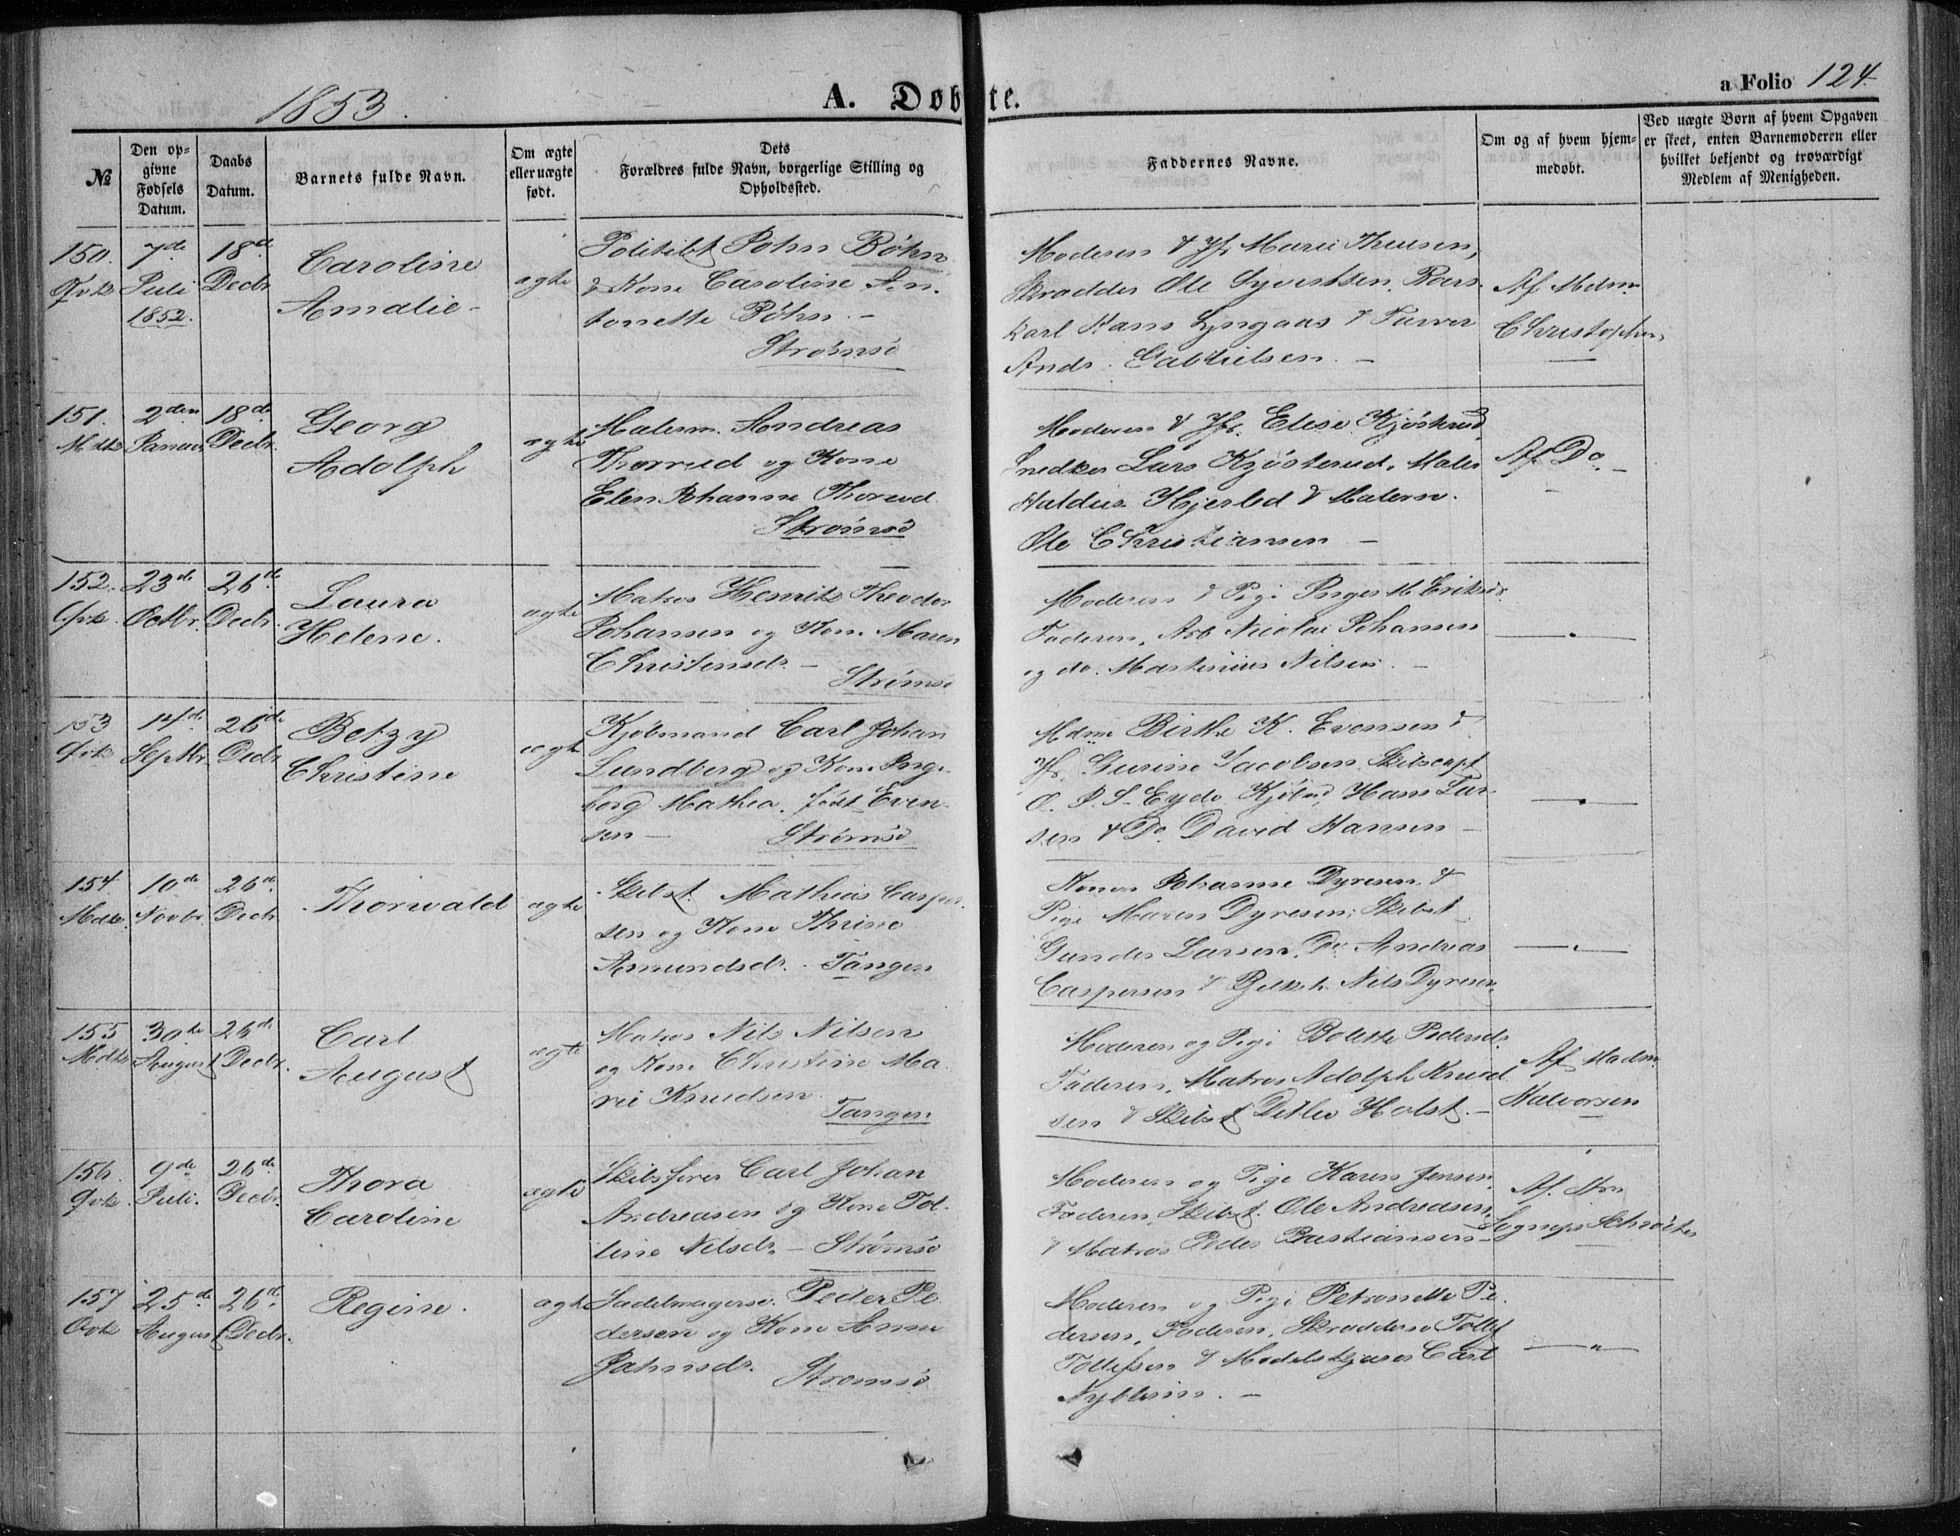 1853.
A. Døbte.
a Folio 124.
№
Den opgivne Fødsels Datum.
Daabs Datum.
Barnets fulde Navn.
Om ægte eller uægte født.
Dets Forældres fulde Navn, borgerlige Stilling og Opholdssted.
Faddernes Navne.
Om og af hvem hjemmedøbt.
Ved uægte Børn af hvem Opgaven er skeet, enten Barnemoderen eller hvilket bekjendt og troværdigt Medlem af Menigheden.
150.
7de Juli 1852.
18de Decbr
Caroline
Amalie
ægte
Politibt John Bøhn
& Kone Caroline An-
tonette Bøhn. -
Strømsø
Moderen & Jfr Marie Thusen,
Skrædder Ole Syvertsen,
Karl Hans Lyngaas &
Ands. Gabrielsen. -
Af Mdm
Christophersen
151.
2den Januar
18de Decbr.
Georg
Adolph
ægte
Malerm. Andreas
Thorrud og Kone
Elen Johanne Thorrud
Strømsø
Moderen & Jfr. Elise Kjøsterud,
Snedker Lars Kjøsterud, Maler
Hjerlid & Malerm.
Ole Christiansen -
Af Do. -
152.
23de Octbr.
26de Decbr.
Laura
Helene.
ægte
Matros Henrik Theodor
Johansen og Kone Maren
Christensdr. -
Strømsø
Moderen & Pige Inger M. Eriksdr.
Faderen, Arb Nicolai Johansen
og do. Martinius Nilsen. -
153
14de Septbr.
26de Decbr
Betzy
Christine
ægte
Kjøbmand Carl Johan
Lundberg og Kone Inge-
borg Mathea, født Even-
sen -
Strømsø
Mdme Birthe K. Evensen &
Jfr. Gurine Jacobsen Skibscapt
O. P. S. Eyde Kjøbmd Hans Lar-
sen & Do. David Hansen -
154
10de Novbr.
26de Decbr
Thorwald
ægte
Skibst. Mathias Casper-
sen og Kone Thrine
Amundsdr. - Tangen
Konen Johanne Dyresen &
Pige Maren Dyresen, Skibst
Gunder Larsen, Do. Andreas
Caspersen & Nils Dyresen
155
30te August
26de Decbr.
Carl
August
ægte
Matros Nils Nilsen
og Kone Christine Ma-
rie Knudsen
Tangen
Moderen og Pige Bolette Pedersdr.
Faderen, Matros Adolph Knud-
sen & Skibst Ditlev Holst. -
Af Madm.
Halvorsen
156.
9de Juli.
26de Decbr.
Thora
Caroline
ægte
Skibsfører Carl Johan
Andreasen og Kone Tol-
line Nilsdr. - Strømsø
Moderen og Pige Karen Jensen,
Faderen, Skibst. Ole Andreasen,
& Matros Peder Bastiansen -
Af Hrr
Sognepr Schrøter
157
25de August
26de Decbr.
Regine.
ægte
Sadelmagersv. Peder Pe-
dersen og Kone Anne
Jahnsdr.
Strømsø
Moderen og Pige Petronelle Pe-
dersen, Faderen, Skrædderm Tollef
Tollefsen & Modelskjærer Carl
Nyblin. -